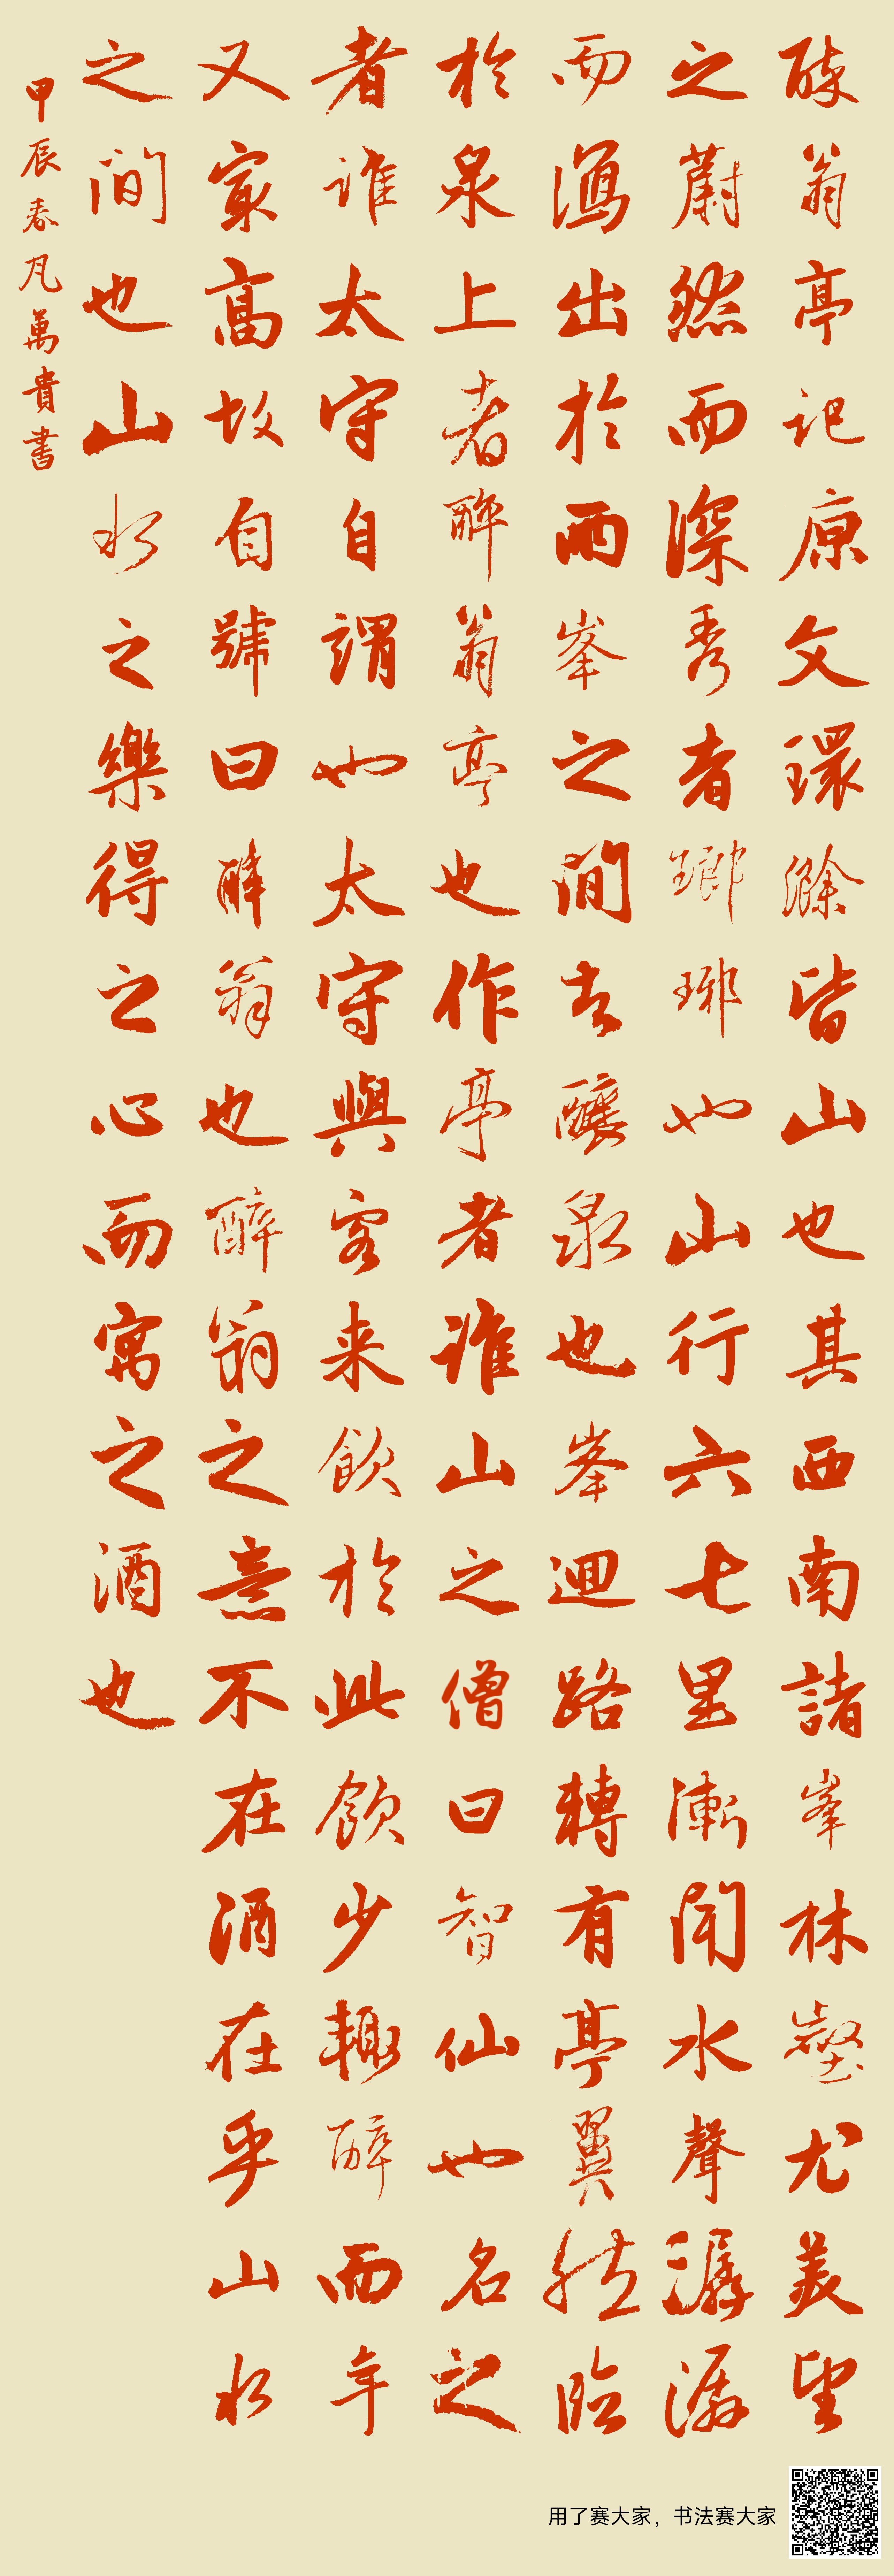 醉翁亭记原文環滁皆山也其西南諸峯林壑尤美望
之蔚然而深秀者瑯琊也山行六七里漸聞水聲潺潺
而瀉出於兩峯之間者釀泉也峯迴路轉有亭翼然臨
於泉上者醉翁亭也作亭者誰山之僧曰智仙也名之
者誰太守自謂也太守與客来飲於此飲少輒醉而年
又最高故自號曰醉翁也醉翁之意不在酒在乎山水
之間也山水之樂得之心而寓之酒也
甲辰春凡萬貴書
用了赛大家，书法赛大家